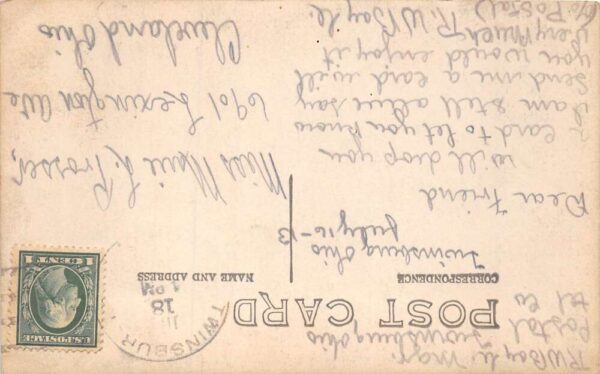 R W Bayle Mgr
Twinsburg Ohio
Postal
tel Co
POST CARD
TWINSBUR
18
1 PM
U.S. POSTAGE
1 CENT 1
CORRESPONDENCE
NAME AND ADDRESS
Twinsburg Ohio
July 16-13
Dear Friend
will drop you
a card to let you know
I am still alive say
send me a card will
you would enjoy it
very much
R. W Bayle.
Postal
Miss Marie L. Prosser,
6901 Lexington Ave
Cleveland Ohio